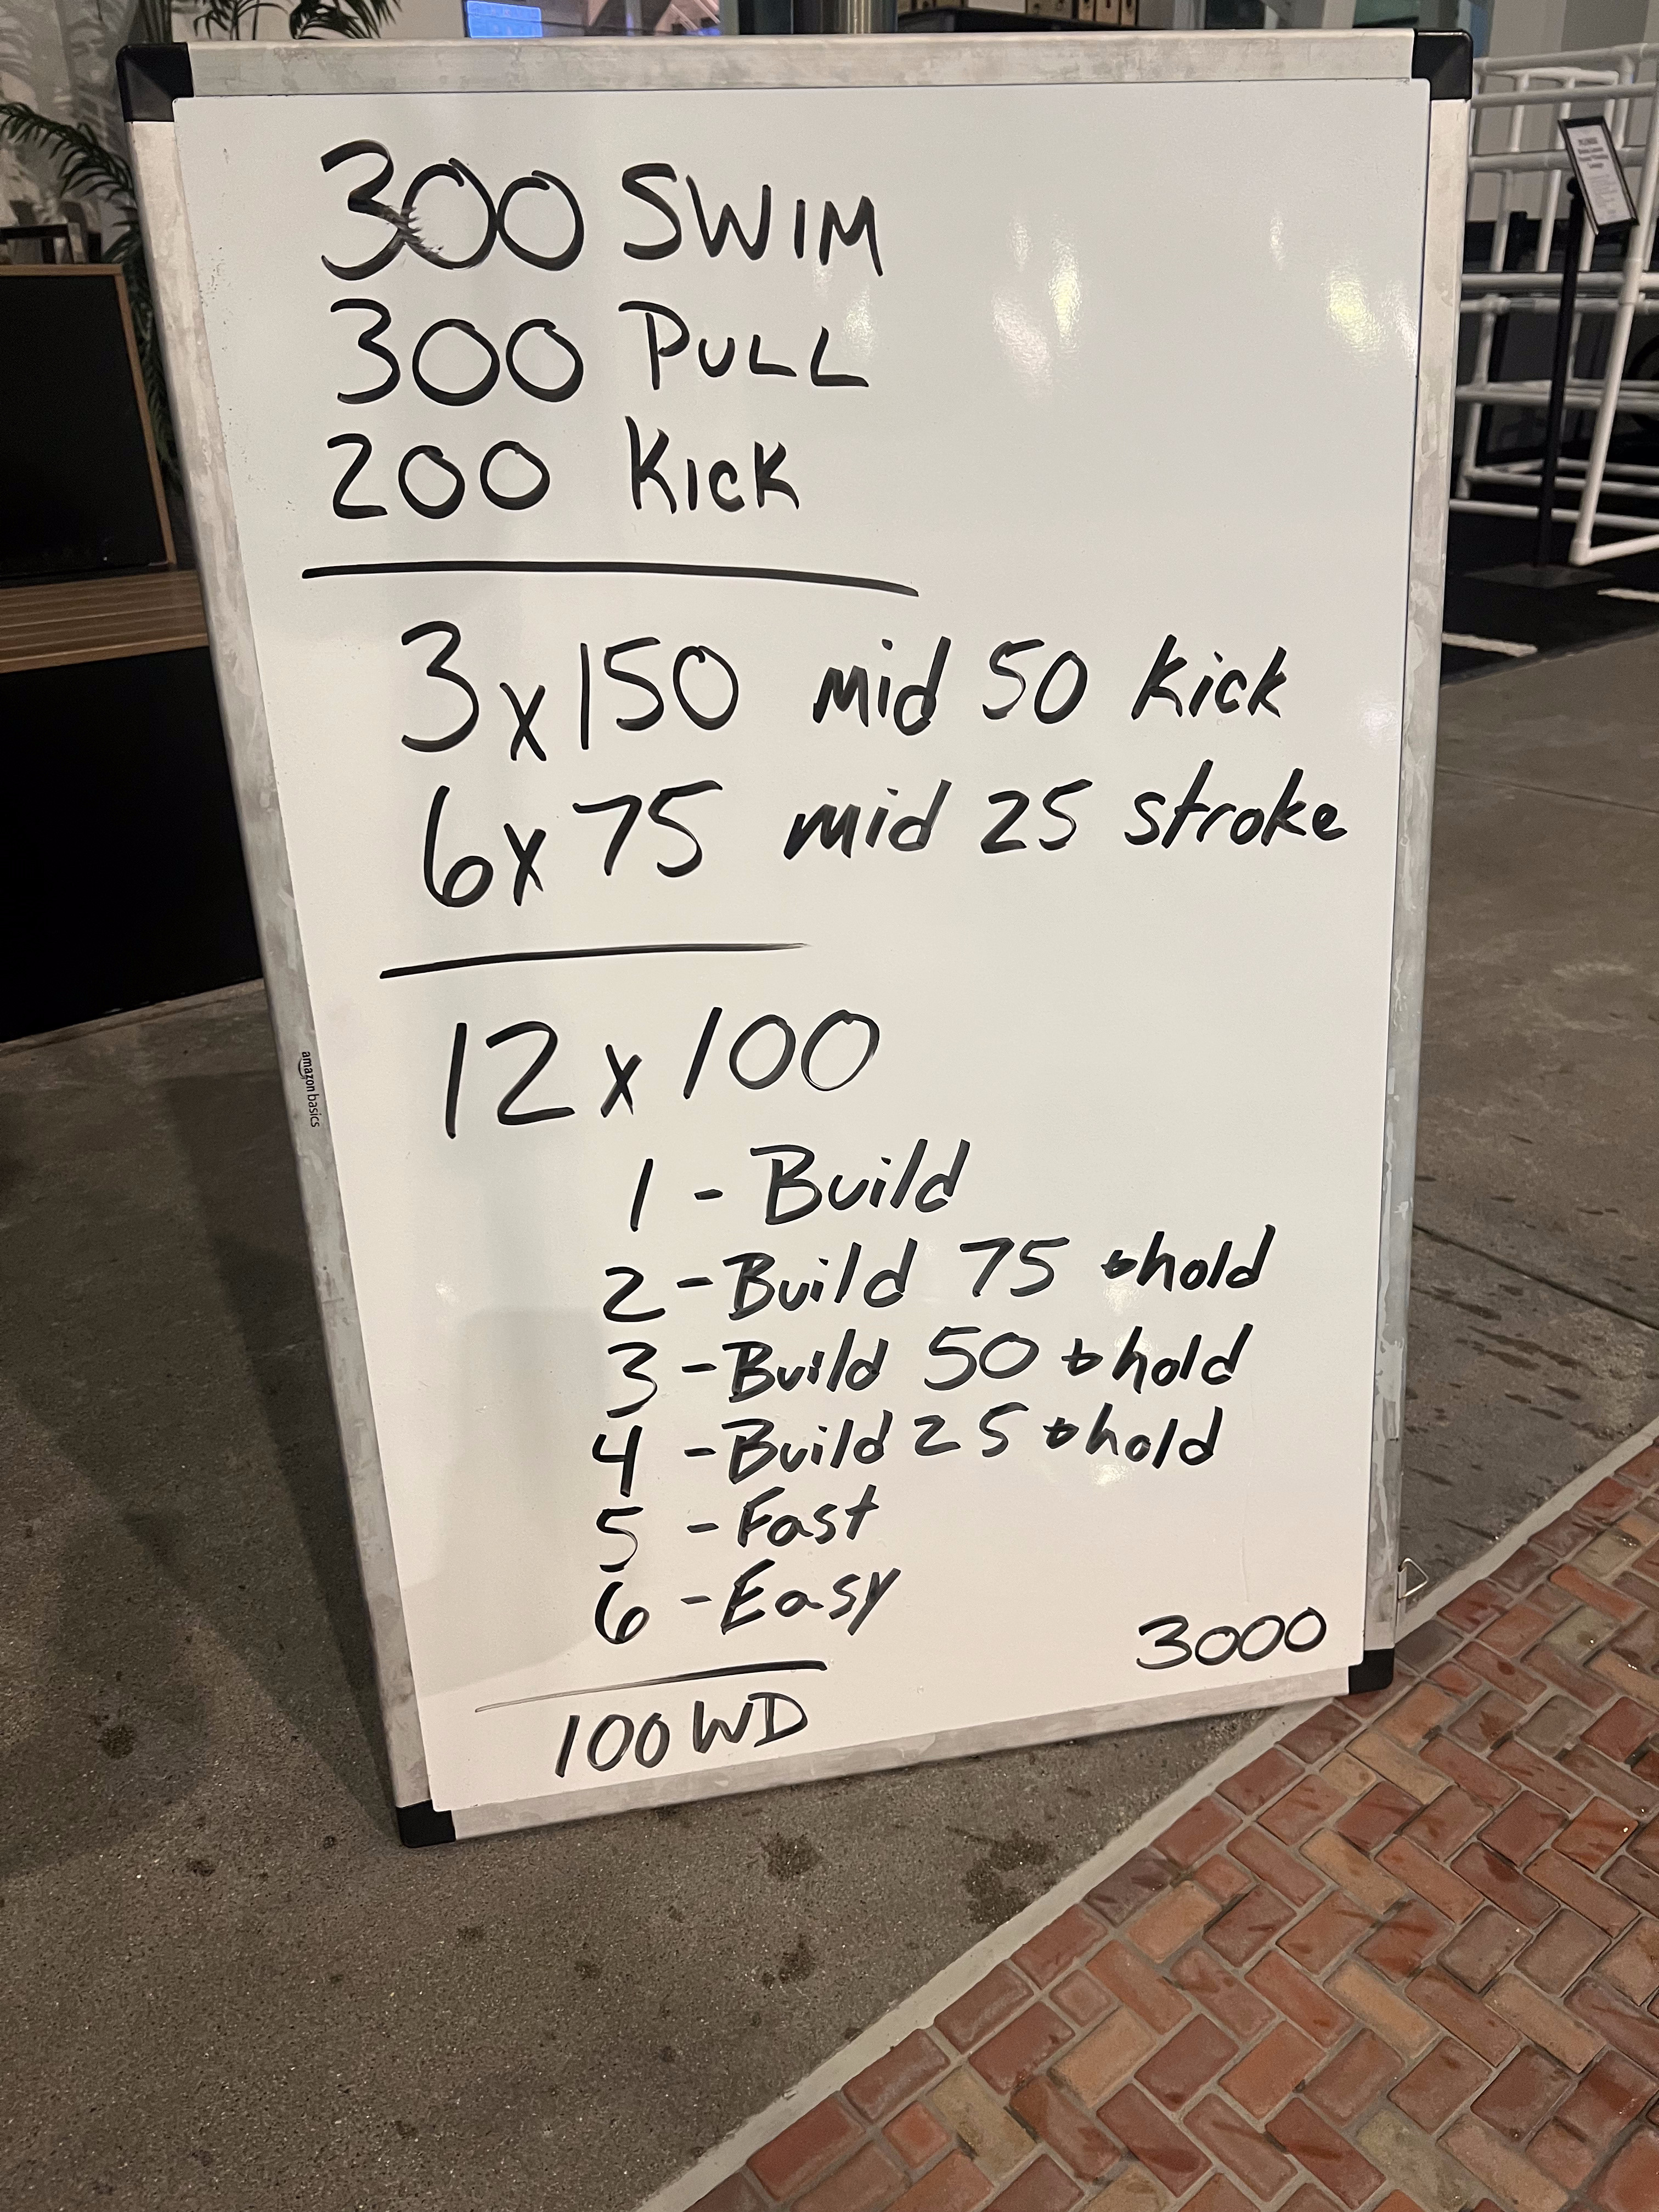 300 SWIM
300 PULL
200 Kick
3x150 mid 50 Kick
6x75 mid 25 stroke
12x100
1 - Build
2 - Build 75 + hold
3 - Build 50 + hold
4 - Build 25 + hold
5 - Fast
6 - Easy
3000
100 WD
amazon basics